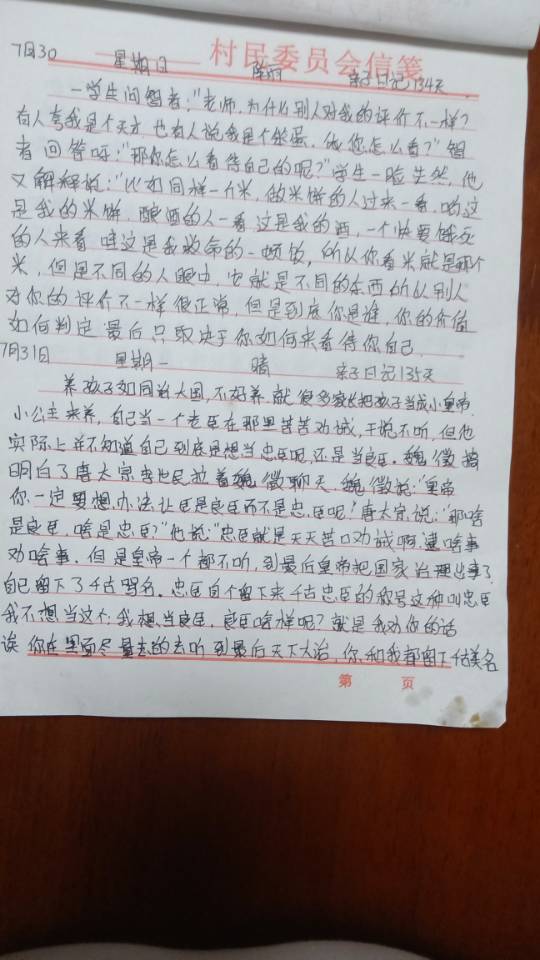 村民委员会信笺
7月30 星期日 阵雨 亲子日记134天
一学生问智者:"老师,为什么别人对我的评价不一样?
有人夸我是个天才,也有人说我是个笨蛋,做您怎么看?"智
者回答呀:"那你怎么看待自己的呢?"学生一脸茫然,他
又解释说:"比如同样一斤米,做米饼的人过来一看,哟这
是我的米饼,酿酒的人一看这是我的酒,一个快要饿死
的人来看哇这是我救命的一顿饭,所以你看米就是那个
米,但是不同的人眼中,它就是不同的东西所以别人
对你的评价不一样很正常,但是到底你是谁,你的价值
如何判定最后只取决于你如何来看待你自己.
7月31日 星期一 晴 亲子日记135天
养孩子如同治大国,不好养就很多家长把孩子当成小皇帝.
小公主来养,自己当一个老臣在那里苦苦劝诫,干说不听,但他
实际上并不知道自己到底是想当忠臣呢,还是当良臣.魏徵搞
明白了唐太宗李世民拉着魏徵聊天.魏徵说:"皇帝
你一定要想办法让臣是良臣而不是忠臣呢?唐太宗说:"那啥
是良臣,啥是忠臣?"他说:"忠臣就是天天苦口劝诫啊,遇啥事
劝啥事,但是皇帝一个都不听,到最后皇帝把国家治理出事了,
自己留下了千古骂名.忠臣自个留下来千古忠臣的称号这种叫忠臣
我不想当这个,我想当良臣,良臣啥样呢?就是我劝你的话
诶你在里面尽量去的去听到最后天下大治,你和我都留下千古美名
第 页